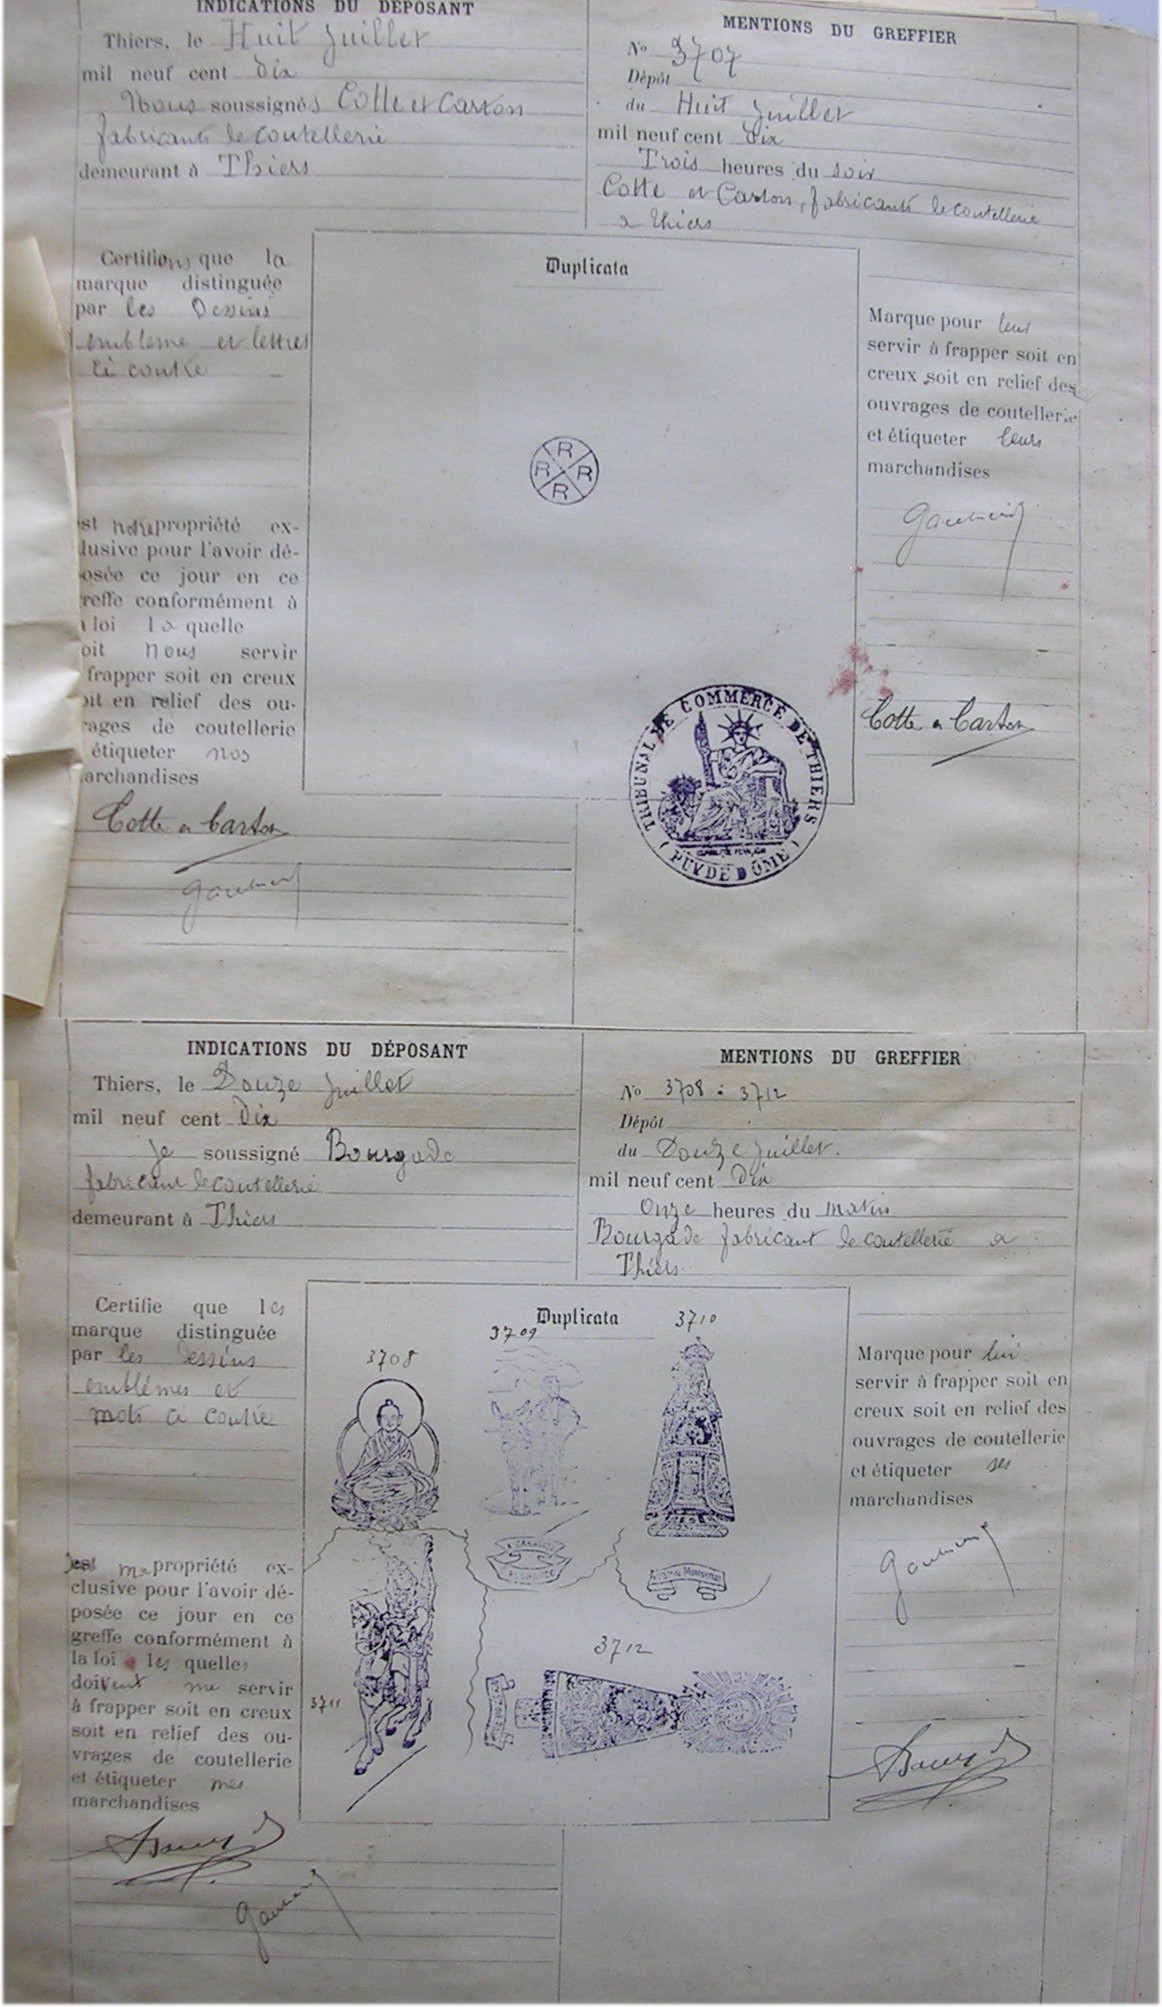 INDICATIONS DU DÉPOSANT
Thiers, le Huit Juillet
mil neuf cent Dix
Nous soussignés Cotte et Carton
fabricants de coutellerie
demeurant à Thiers
MENTIONS DU GREFFIER
No 3707
Dépôt
du Huit Juillet
mil neuf cent Dix
Trois heures du soir
Cotte et Carton, fabricants de coutellerie
a Thiers
Certifions que la
marque distinguée
par les Dessins
emblème et lettres
ci contre
est notre propriété ex-
lusive pour l'avoir dé-
osée ce jour en ce
reffe conformément à
a loi la quelle
oit nous servir
frapper soit en creux
oit en relief des ou-
rages de coutellerie
étiqueter nos
archandises
Cotte et Carton
Duplicata
R
R R
R
TRIBUNAL DE COMMERCE DE THIERS
( PUY DE DÔME )
Marque pour leur
servir à frapper soit en
creux soit en relief des
ouvrages de coutellerie
et étiqueter leurs
marchandises
Cotte et Carton
INDICATIONS DU DÉPOSANT
Thiers, le Douze Juillet
mil neuf cent Dix
Je soussigné Bourgade
fabricant de coutellerie
demeurant à Thiers
MENTIONS DU GREFFIER
No 3708 : 3712
Dépôt
du Douze Juillet.
mil neuf cent Dix
Onze heures du matin
Bourgade fabricant de coutellerie a
Thiers
Certifie que les
marque distinguée
par les Dessins
emblèmes et
mots ci contre
est ma propriété ex-
clusive pour l'avoir dé-
posée ce jour en ce
greffe conformément à
la loi les quelles
doivent me servir
à frapper soit en creux
soit en relief des ou-
vrages de coutellerie
et étiqueter mes
marchandises
Duplicata
3708
3709
3710
3711
3712
Marque pour lui
servir à frapper soit en
creux soit en relief des
ouvrages de coutellerie
et étiqueter ses
marchandises